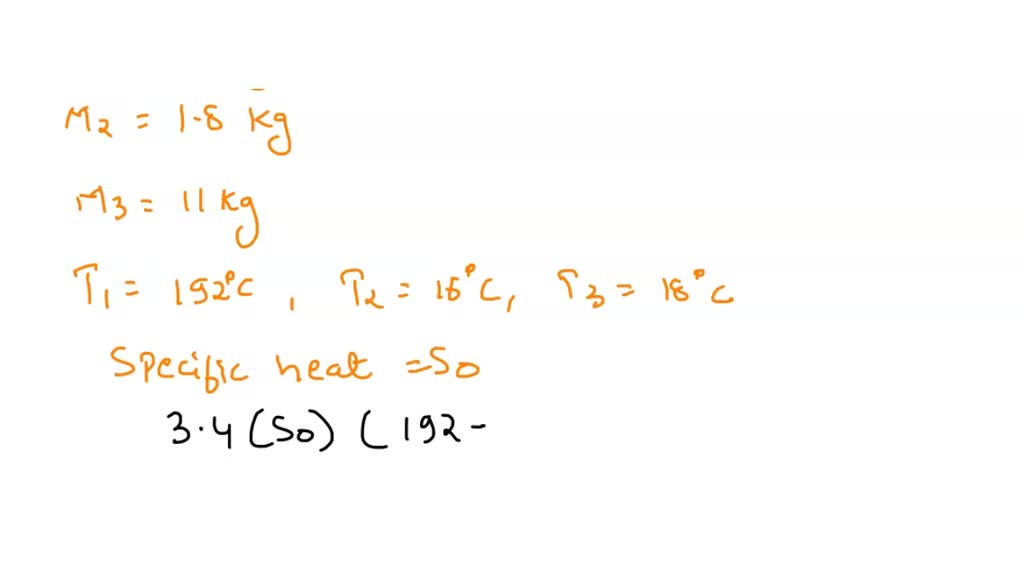 M2 = 1.8 kg
M3 = 11 kg
T1 = 192°C, T2 = 18°C, T3 = 18°C
Specific heat = So
3.4 (So) (192 -